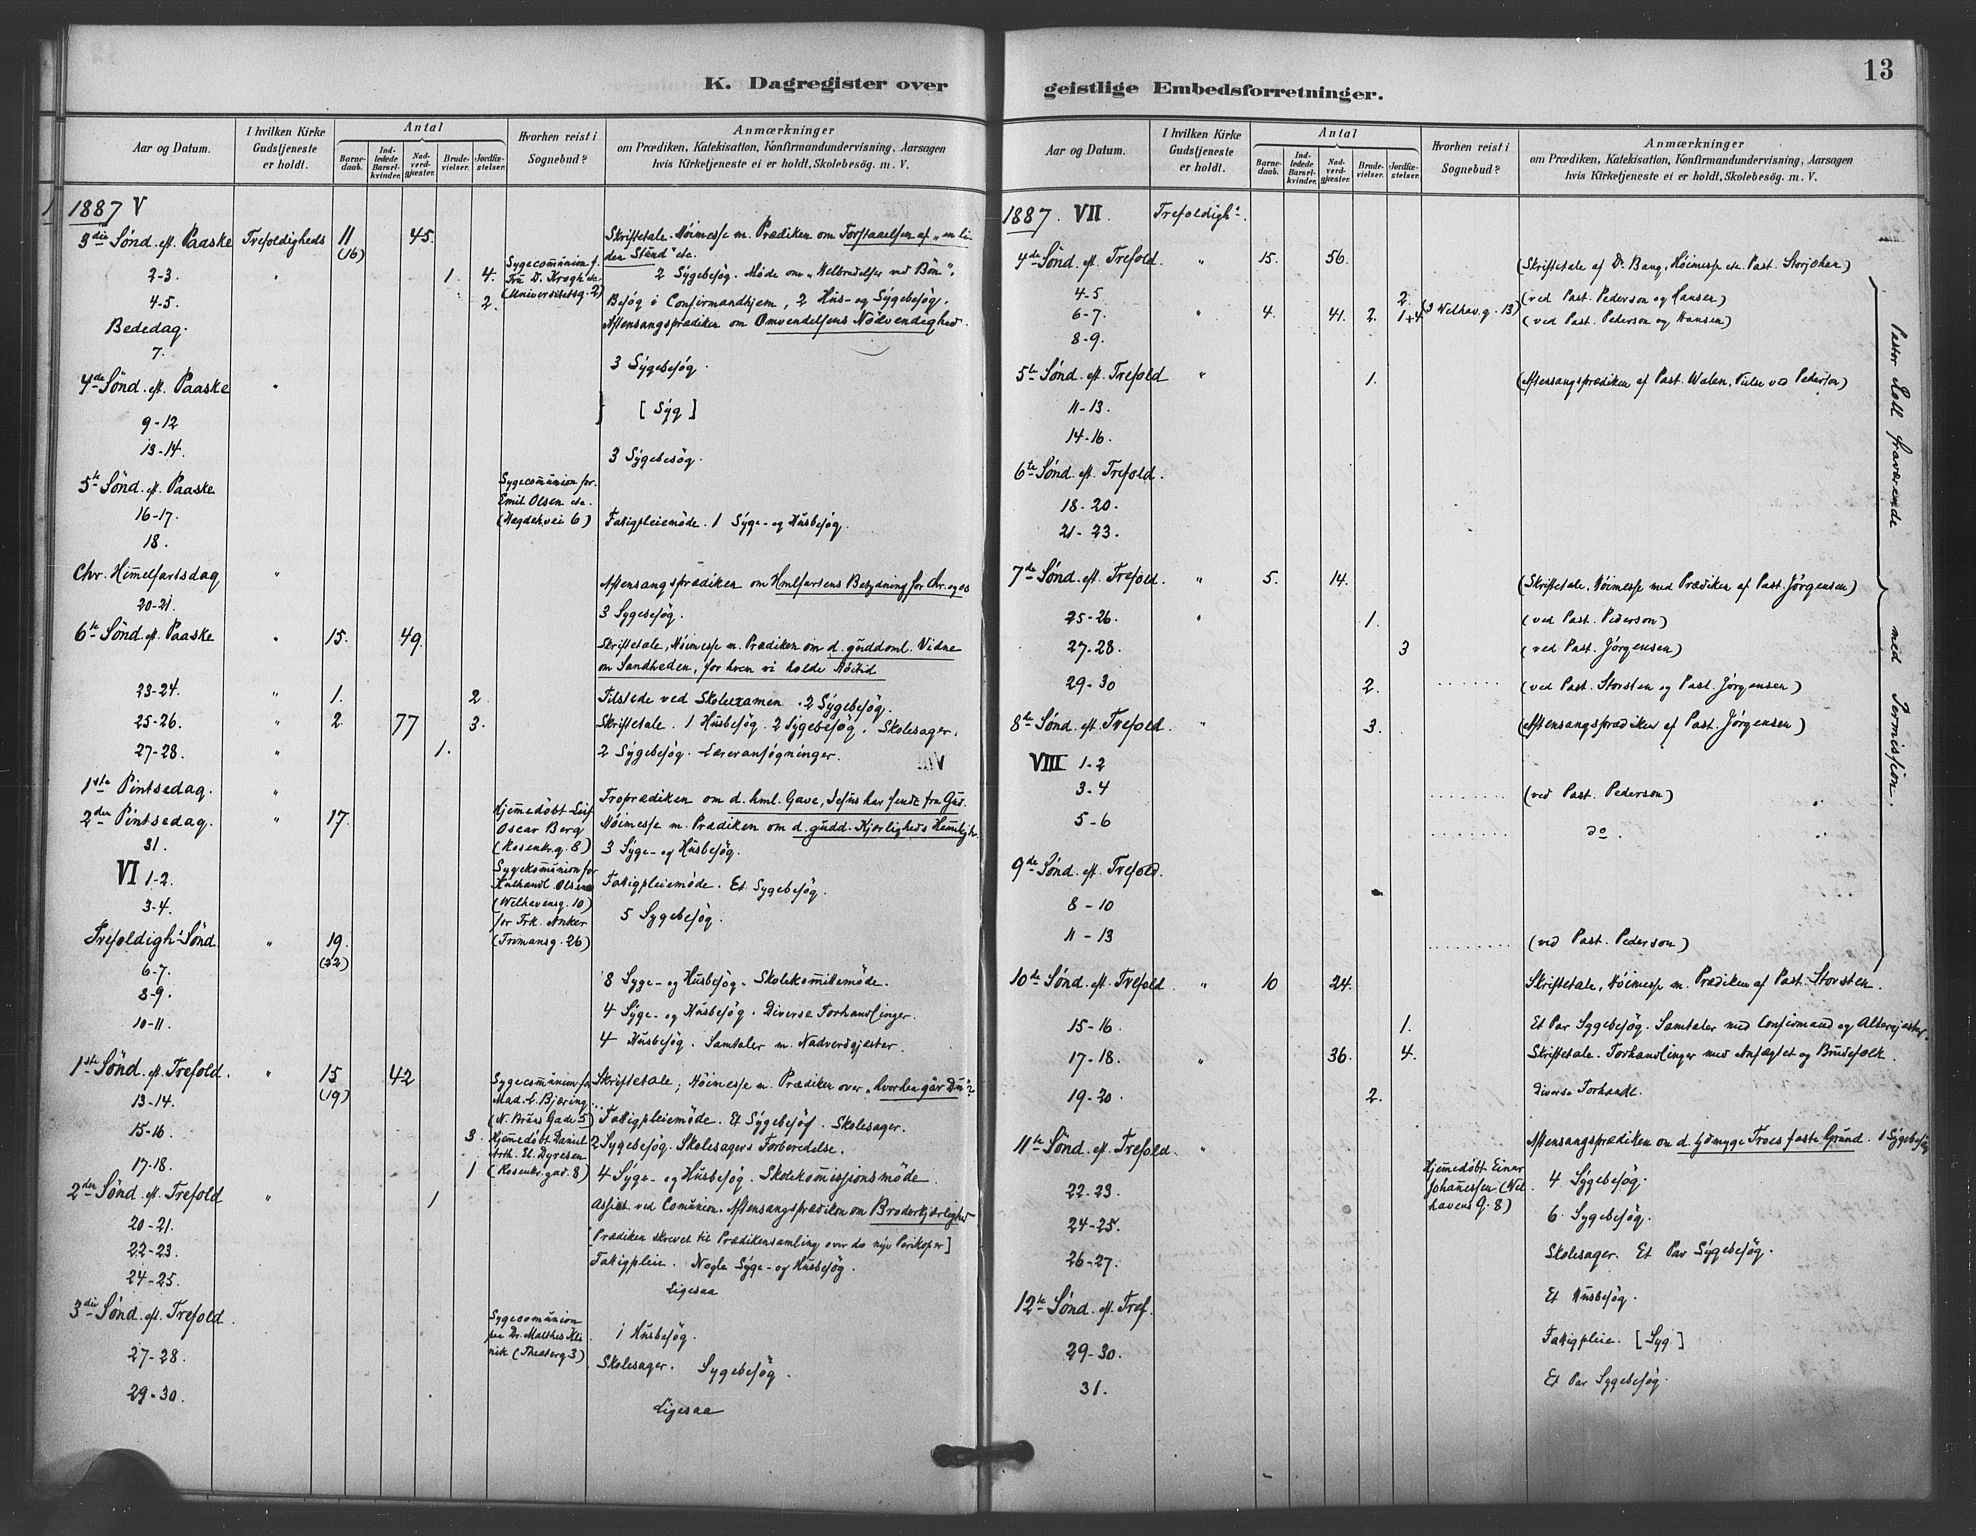 K. Dagregister over
Aar og Datum.
I hvilken Kirke Gudstjeneste er holdt.
Antal
Barnedaab.
Indledede Barselkvinder.
Nadverdgjæster.
Brudevielser.
Jordfæstelser.
Hvorhen reist i Sognebud?
Anmærkninger
om Prædiken, Katekisation, Konfirmandundervisning, Aarsagen
hvis Kirketjeneste ei er holdt, Skolebesög. m. V.
1887 V
3die Sönd. eft. Paaske Trefoldigheds 11 (16) 45. Skriftetale. Höimesse m. Prædiken om Forstaaelsen af "en li
den Stund" etc.
2-3. " 1. 4. Sygecommunion f. Fru D. Krogh etc. (Universitetsg. 2) 2 Sygebesög. Möde om
4-5. 2. Besög i Confirmandhjem, 2 Hus- og Sygebesög.
Bededag. Aftensangsprædiken om Omvendelsens Nödvendighed.
7. 3 Sygebesög.
4de Sönd. eft. Paaske "
9-12 [Syg]
13-14. 3 Sygebesög.
5te Sönd. eft. Paaske Sygecommunion for Emil Olsen etc. (Hægdehvei 6)
16-17. Fattigpleiemöde. 1 Syge- og Husbesög.
18.
Chr. Himmelfartsdag " Aftensangsprædiken om Hmlfartens Betydning for Chr. og os
20-21. 3 Sygebesög.
6te Sönd. eft. Paaske " 15. 49. Skriftetale, Höimesse m. Prædiken om d. guddoml. Vidne
om Sandheden, for hvem vi holde Höitid
23-24. " 1. 2. Tilstede ved Skoleexamen. 2 Sygebesög.
25-26. " 2. 77 3. Skriftetale. 1 Husbesög. 2 Sygebesög. Skolesager.
27-28. " 1. 2 Sygebesög. Læreransögninger.
1ste Pintsedag. " Froprædiken om d. hml. Gave, Jesus har sendt fra Gud.
2den Pintsedag. " 17. Hjemmedöbt Leif Oscar Berg (Rosenkr.g. 8) Höimesse m. Prædiken om d. gudd. Kjærligheds Hemmeligh.
31. 3 Syge- og Husbesög.
VI 1-2. Sygekommunion for Olsen (Welhavensg. 10) Fattigpleiemöde. Et Sygebesög.
3-4. for Frk. Anker (Tromansg. 26) 5 Sygebesög.
Trefoldigh.s Sönd. " 19. (22)
6-7. 8 Syge- og Husbesög. Skolekomitemöde.
8-9. 4 Syge- og Husbesög. Diverse Forhandlinger.
10-11. 4 Husbesög. Samtaler m. Nadverdgjæster.
1ste Sönd. eft. Trefold. " 15 (19) 42 Sygecommunion for Mad. E. Bjæring (N. Bruns Gade 5) Skriftetale; Höimesse m. Prædiken over "Hvorhen går Du"?
13-14. Fattigpleiemöde. Et Sygebesög. Skolesager.
15-16. 3. Hjemmedöbt Daniel Arth. El. Dyresen (Rosenkr.gad. 8) 2 Sygebesög. Skolesagers Forberedelse.
17-18. 1 4 Syge- og Husbesög. Skolekommissionsmöde.
2den Sönd. eft. Trefold " 1 Assist. ved Comunion. Aftensangsprædiken om Broderkjærlighed
20-21. [Prædiken skrevet til Prædikensamling over de nye Perikoper]
22-23. Fattigpleie. Nogle Syge- og Husbesög.
24-25. Ligesaa
3die Sönd. eft. Trefold. Sygecomunion Dr. Malthes Klinik (Theaterg 3) 1 Husbesög.
27-28. Skolesager. Sygebesög.
29-30. Ligesaa
geistlige Embedsforretninger.
13
Aar og Datum.
I hvilken Kirke Gudstjeneste er holdt.
Antal
Barnedaab.
Indledede Barselkvinder.
Nadverdgjæster.
Brudevielser.
Jordfæstelser.
Hvorhen reist i Sognebud?
Anmærkninger
om Prædiken, Katekisation, Konfirmandundervisning, Aarsagen
hvis Kirketjeneste ei er holdt, Skolebesög. m. V.
1887. VII. Trefoldigh.s
4de Sönd. eft. Trefold. " 15. 56. (Skriftetale af Dr. Bang, Höimesse etc. Past. Storjohan)
4-5 2. (ved Past. Pederson og Hansen)
6-7. " 4. 41. 2. 1+4 (3 Welhav.g. 13) (ved Past. Pederson og Hansen)
8-9.
5te Sönd. eft. Trefold " 1. (Aftensangsprædiken af Past. Walen, Vielse ved Pederson)
11-13.
14-16.
6te Sönd. eft. Trefold.
18-20.
21-23.
7de Sönd. eft. Trefold. " 5. 14. (Skriftetale, Höimesse med Prædiken af Past. Jörgensen)
25-26. " 1. (ved Past. Pederson)
27-28. 3 (ved Past. Jörgensen)
29-30 2. (ved Past. Storsten og Past. Jörgensen)
8de Sönd. eft. Trefold. " 3. (Aftensangsprædiken af Past. Jörgensen)
VIII 1-2
3-4 (ved Past. Pederson)
5-6 do
9de Sönd. eft. Trefold.
8-10
11-13 (ved Past. Pederson)
Pastor Roll fraværende med Permission.
10de Sönd. eft. Trefold. " 10 24. Skriftetale, Höimesse m. Prædiken af Past. Storsten.
15-16. 1. Et Par Sygebesög. Samtaler med Confirmand og Altergjæster.
17-18. " 36. 4. Skriftetale. Forhandlinger med Anfægtet og Brudefolk.
19-20. 2. Diverse Forhandl.
11te Sönd. eft. Trefold. " Aftensangsprædiken om d. ydmyge Troes faste Grund. 1 Sygebesög
22-23. Hjemmedöbt Einar Johannessen (Welhavens G. 8) 4 Sygebesög.
24-25. 6. Sygebesög.
26-27. Skolesager. Et Par Sygebesög.
12te Sönd. eft. Tref. Et Husbesög.
29-30. Fattigpleie. [Syg]
31. Et Par Sygebesög.